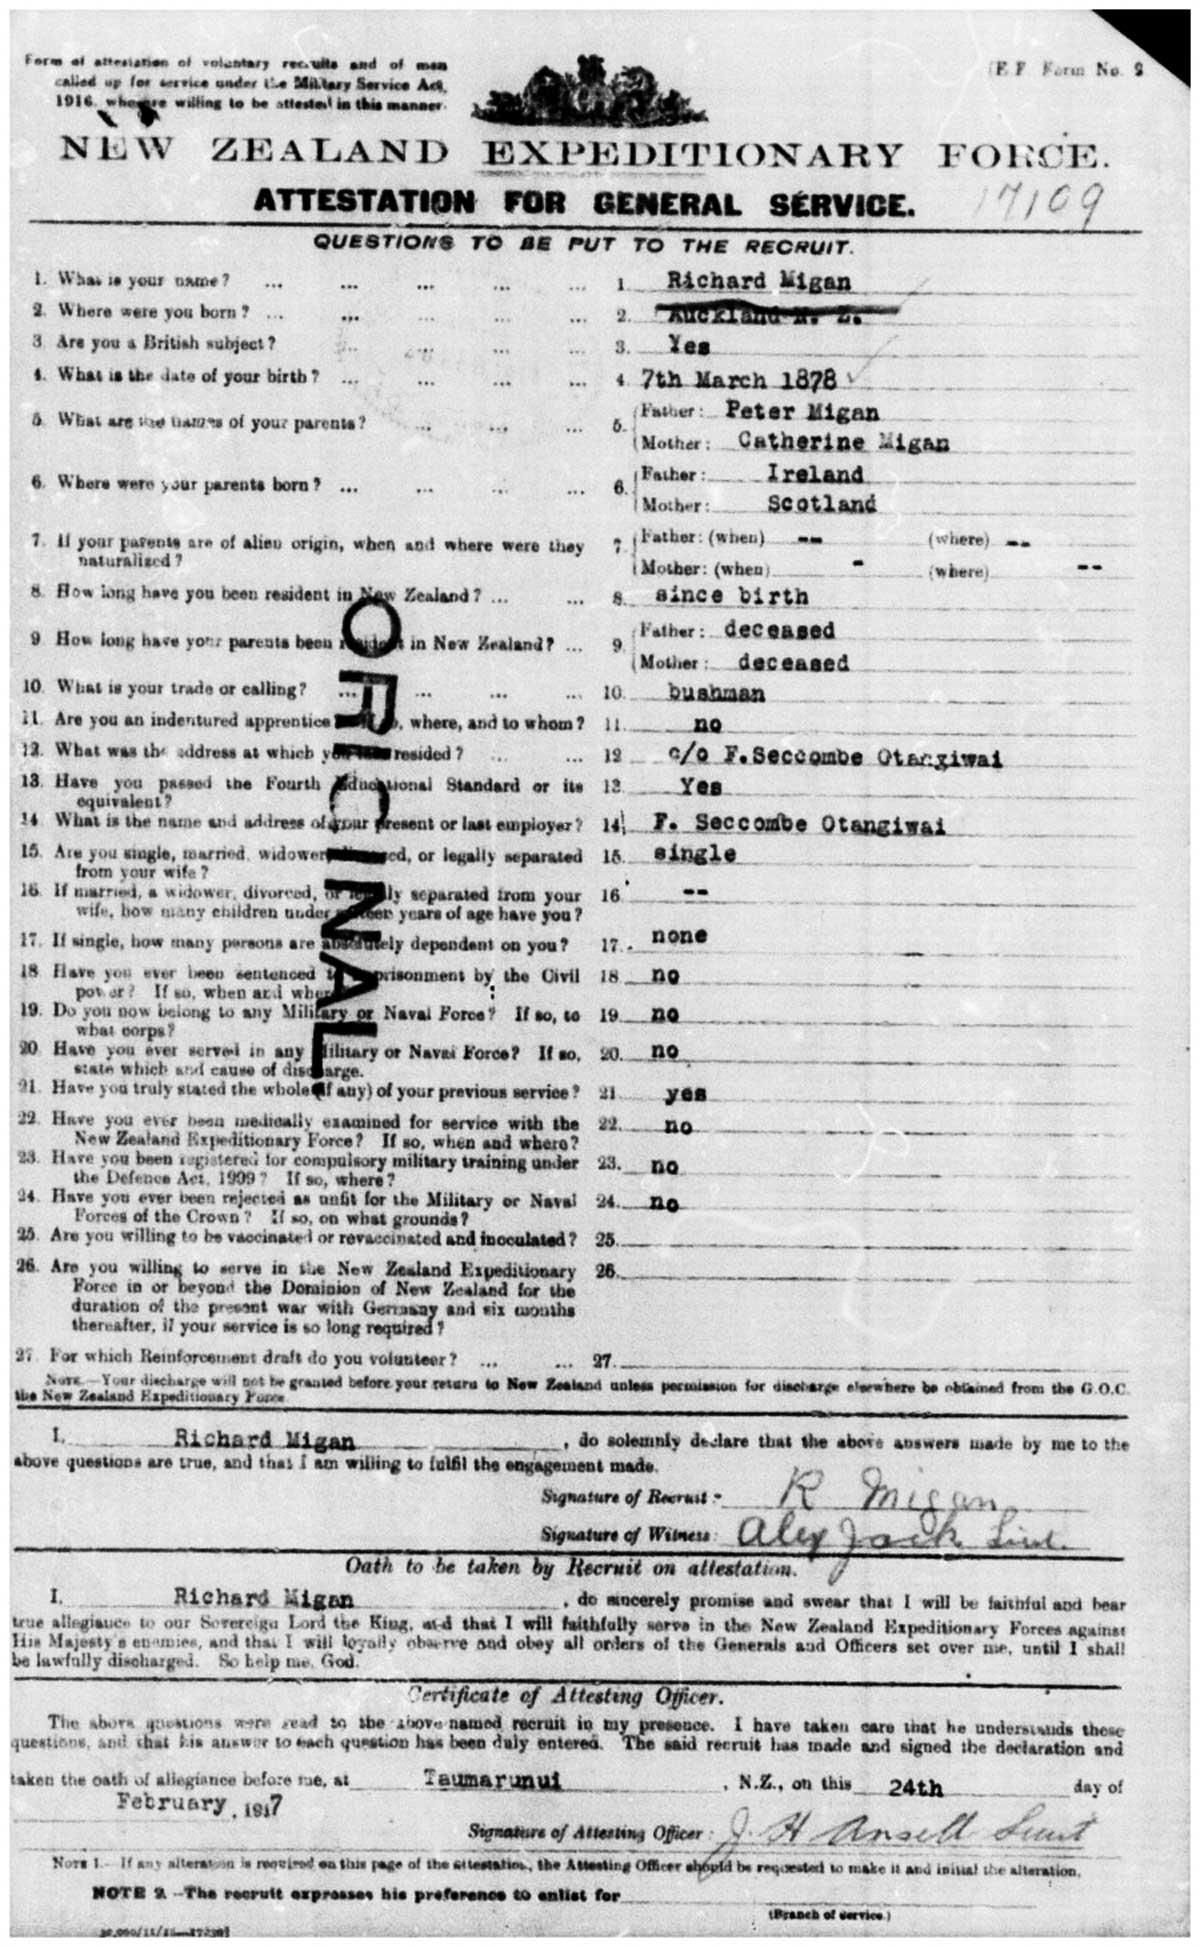 Form of attestation of voluntary recruits and of men
called up for service under the Military Service Act,
1916, who are willing to be attested in this manner.
E.F. Form No. 2
NEW ZEALAND EXPEDITIONARY FORCE.
ATTESTATION FOR GENERAL SERVICE.
17109
QUESTIONS TO BE PUT TO THE RECRUIT.
1. What is your name? ... ... ... ... ... 1. Richard Migan
2. Where were you born? ... ... ... ... ... 2. Auckland N. Z.
3. Are you a British subject? ... ... ... ... 3. Yes
4. What is the date of your birth? ... ... ... ... 4. 7th March 1878
5. What are the names of your parents? ... ... ... 5. Father: Peter Migan
Mother: Catherine Migan
6. Where were your parents born? ... ... ... ... 6. Father: Ireland
Mother: Scotland
7. If your parents are of alien origin, when and where were they
naturalized?
7. Father: (when) -- (where) --
Mother: (when) - (where) --
8. How long have you been resident in New Zealand? ... ... 8. since birth
9. How long have your parents been resident in New Zealand? ... 9. Father: deceased
Mother: deceased
10. What is your trade or calling? ... ... ... ... 10. bushman
11. Are you an indentured apprentice? If so, where, and to whom? 11. no
12. What was the address at which you last resided? ... ... 12. c/o F.Seccombe Otangiwai
13. Have you passed the Fourth Educational Standard or its 13. Yes
equivalent?
14. What is the name and address of your present or last employer? 14. F. Seccombe Otangiwai
15. Are you single, married, widower, divorced, or legally separated 15. single
from your wife?
16. If married, a widower, divorced, or legally separated from your 16. --
wife, how many children under sixteen years of age have you?
17. If single, how many persons are absolutely dependent on you? 17. none
18. Have you ever been sentenced to imprisonment by the Civil 18. no
power? If so, when and where?
19. Do you now belong to any Military or Naval Force? If so, to 19. no
what corps?
20. Have you ever served in any Military or Naval Force? If so, 20. no
state which and cause of discharge.
21. Have you truly stated the whole (if any) of your previous service? 21. yes
22. Have you ever been medically examined for service with the 22. no
New Zealand Expeditionary Force? If so, when and where?
23. Have you been registered for compulsory military training under 23. no
the Defence Act, 1909? If so, where?
24. Have you ever been rejected as unfit for the Military or Naval 24. no
Forces of the Crown? If so, on what grounds?
25. Are you willing to be vaccinated or revaccinated and inoculated? 25.
26. Are you willing to serve in the New Zealand Expeditionary 26.
Force in or beyond the Dominion of New Zealand for the
duration of the present war with Germany and six months
thereafter, if your service is so long required?
27. For which Reinforcement draft do you volunteer? ... ... 27.
ORIGINAL
NOTE.—Your discharge will not be granted before your return to New Zealand unless permission for discharge elsewhere be obtained from the G.O.C.
the New Zealand Expeditionary Force.
I, Richard Migan, do solemnly declare that the above answers made by me to the
above questions are true, and that I am willing to fulfil the engagement made.
Signature of Recruit:- R Migan
Signature of Witness: Alex Jack Lieut.
Oath to be taken by Recruit on attestation.
I, Richard Migan, do sincerely promise and swear that I will be faithful and bear
true allegiance to our Sovereign Lord the King, and that I will faithfully serve in the New Zealand Expeditionary Forces against
His Majesty's enemies, and that I will loyally observe and obey all orders of the Generals and Officers set over me, until I shall
be lawfully discharged. So help me, God.
Certificate of Attesting Officer.
The above questions were read to the above-named recruit in my presence. I have taken care that he understands these
questions, and that his answer to each question has been duly entered. The said recruit has made and signed the declaration and
taken the oath of allegiance before me, at Taumarunui, N.Z., on this 24th day of
February, 1917
Signature of Attesting Officer: J H Ansell Lieut
NOTE 1.—If any alteration is required on this page of the attestation, the Attesting Officer should be requested to make it and initial the alteration.
NOTE 2.—The recruit expresses his preference to enlist for
(Branch of service.)